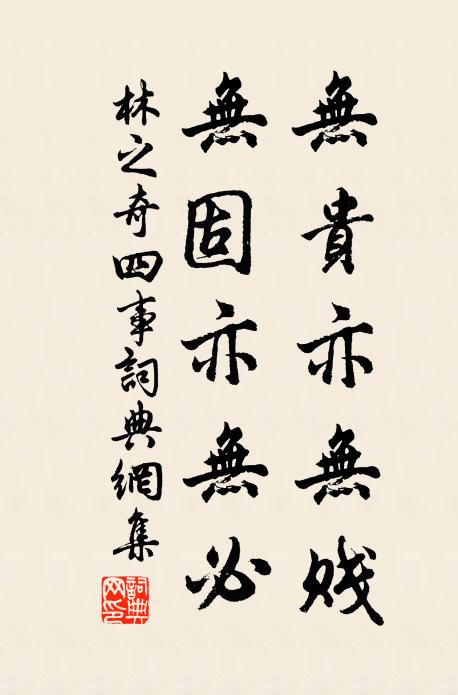 無貴亦無賤
無固亦無必
林之奇四事詞典網集
詞典网印